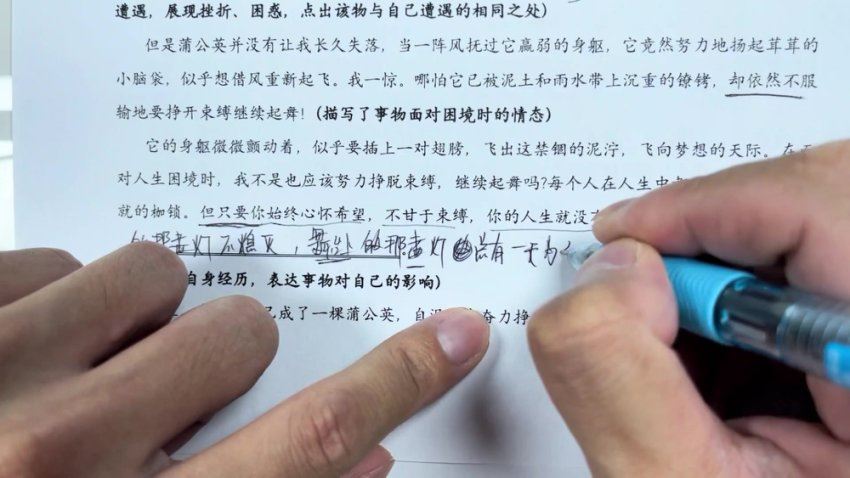 遭遇，展现挫折、困惑，点出该物与自己遭遇的相同之处）
但是蒲公英并没有让我长久失落，当一阵风抚过它羸弱的身躯，它竟然努力地扬起茸茸的
小脑袋，似乎想借风重新起飞。我一惊。哪怕它已被泥土和雨水带上沉重的镣铐，却依然不服
输地要挣开束缚继续起舞！（描写了事物面对困境时的情态）
它的身躯微微颤动着，似乎要插上一对翅膀，飞出这禁锢的泥泞，飞向梦想的天际。在
对人生困境时，我不是也应该努力挣脱束缚，继续起舞吗？每个人在人生中
就的枷锁。但只要你始终心怀希望，不甘于束缚，你的人生就没
的那盏灯不熄灭，远处的那盏灯总有一天为
自身经历，表达事物对自己的影响）
已成了一棵蒲公英，自 奋力挣